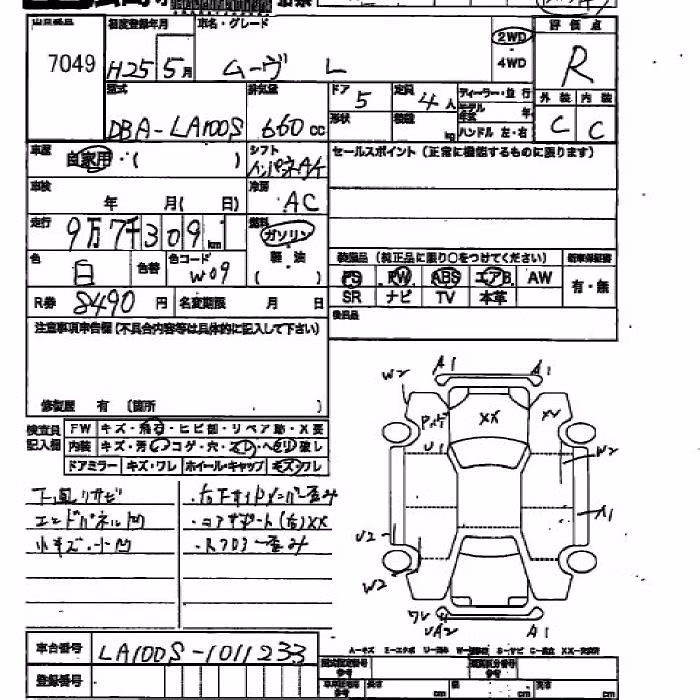 初度登録年月 車名・グレード 評価点
7049 H25 5月 ムーヴ L 2WD 4WD R
型式 排気量 ドア 5 定員 4人 ディーラー・並行
外装 内装
DBA-LA100S 660cc 形状 積載 kg ハンドル 左・右 C C
車歴 自家用・( ) シフト インパネA/T セールスポイント(正常に機能するものに限ります)
車検 年 月( 日) 冷房 AC
走行 9万7千309km 燃料 ガソリン
軽油 ( )
装備品(純正品に限り○をつけてください) 新車保証書
色 白 色替 色コード W09
PS PW ABS エアB. AW 有・無
R券 8490円 名変期限 月 日 SR ナビ TV 本革
注意事項申告欄(不具合内容等は具体的に記入して下さい) 後日品
修復歴 有 (箇所 )
検査員記入欄 FW キズ・飛石・ヒビ割・リペア跡・X要
内装 キズ・汚・コゲ・穴・スレ・ヘタリ・破レ
ドアミラー キズ・ワレ ホイール・キャップ キズ・ワレ
下廻リサビ
エンドパネル凹
小キズ・小凹
・右フサイドメンバー歪み
・コアサポート(右)XX
A1 A1
W2
XX
U1
W2
A1
U2
W2
ワレ
UA2 A1
車台番号 LA100S-1011233
登録番号
A=キズ E=エクボ
cm cm cm